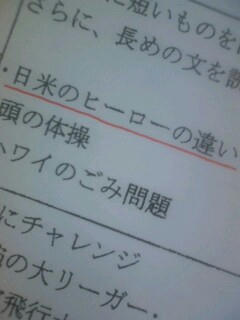 に短いものを
さらに、長めの文を読
・日米のヒーローの違い
頭の体操
ハワイのごみ問題
にチャレンジ
の大リーガー・
飛行